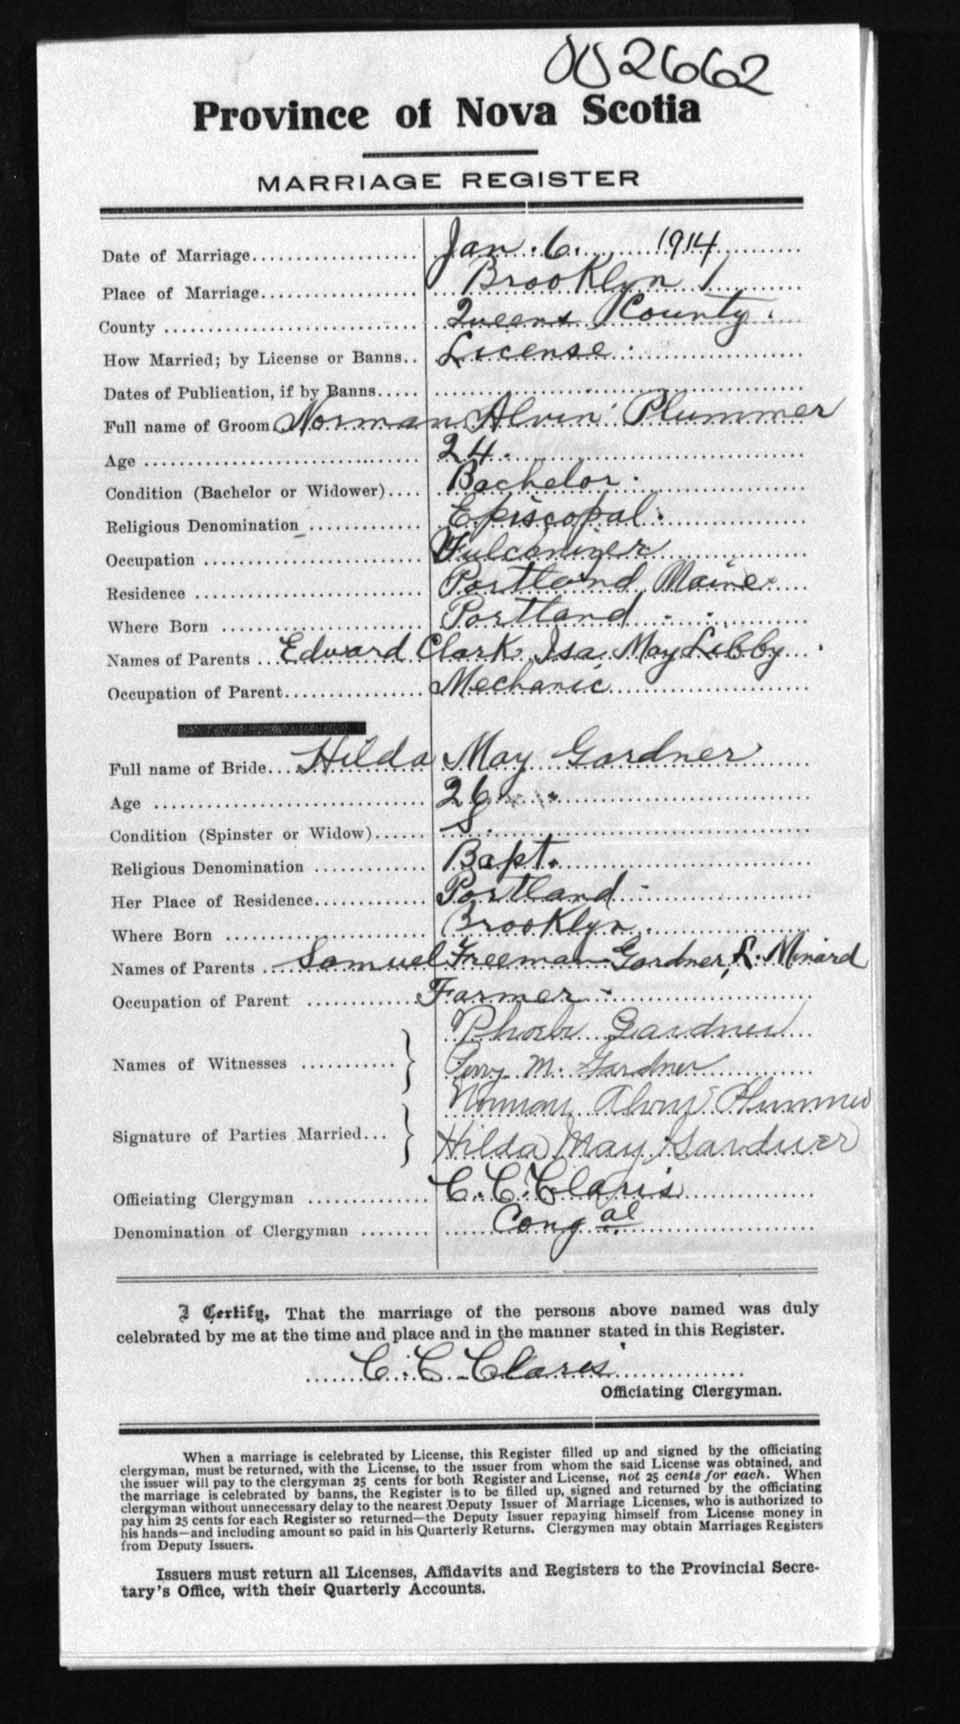 002662
Province of Nova Scotia
MARRIAGE REGISTER
Date of Marriage.................... Jan. 6. 1914
Place of Marriage................... Brooklyn
County .............................. Queens County.
How Married; by License or Banns.. License.
Dates of Publication, if by Banns.....
Full name of Groom Norman Alvin Plummer
Age ................................. 24.
Condition (Bachelor or Widower).... Bachelor.
Religious Denomination ............. Episcopal.
Occupation .......................... Vulcanizer
Residence ........................... Portland Maine
Where Born ........................ Portland
Names of Parents ... Edward Clark, Isa May Libby
Occupation of Parent................ Mechanic
Full name of Bride... Hilda May Gardner
Age ................................. 26
Condition (Spinster or Widow)...... S.
Religious Denomination ............. Bapt.
Her Place of Residence............. Portland
Where Born ........................ Brooklyn.
Names of Parents .... Samuel Freeman Gardner, L. Minard
Occupation of Parent ............. Farmer
Phoebe Gardner
Names of Witnesses ........... Perry M. Gardner
Norman Alvin Plummer
Signature of Parties Married... Hilda May Gardner
Officiating Clergyman .............. C. C. Claris
Denomination of Clergyman ........ Cong al
I Certify, That the marriage of the persons above named was duly
celebrated by me at the time and place and in the manner stated in this Register.
C. C. Claris
Officiating Clergyman.
When a marriage is celebrated by License, this Register filled up and signed by the officiating
clergyman, must be returned, with the License, to the issuer from whom the said License was obtained, and
the issuer will pay to the clergyman 25 cents for both Register and License, not 25 cents for each. When
the marriage is celebrated by banns, the Register is to be filled up, signed and returned by the officiating
clergyman without unnecessary delay to the nearest Deputy Issuer of Marriage Licenses, who is authorized to
pay him 25 cents for each Register so returned—the Deputy Issuer repaying himself from License money in
his hands—and including amount so paid in his Quarterly Returns. Clergymen may obtain Marriages Registers
from Deputy Issuers.
Issuers must return all Licenses, Affidavits and Registers to the Provincial Secre-
tary's Office, with their Quarterly Accounts.